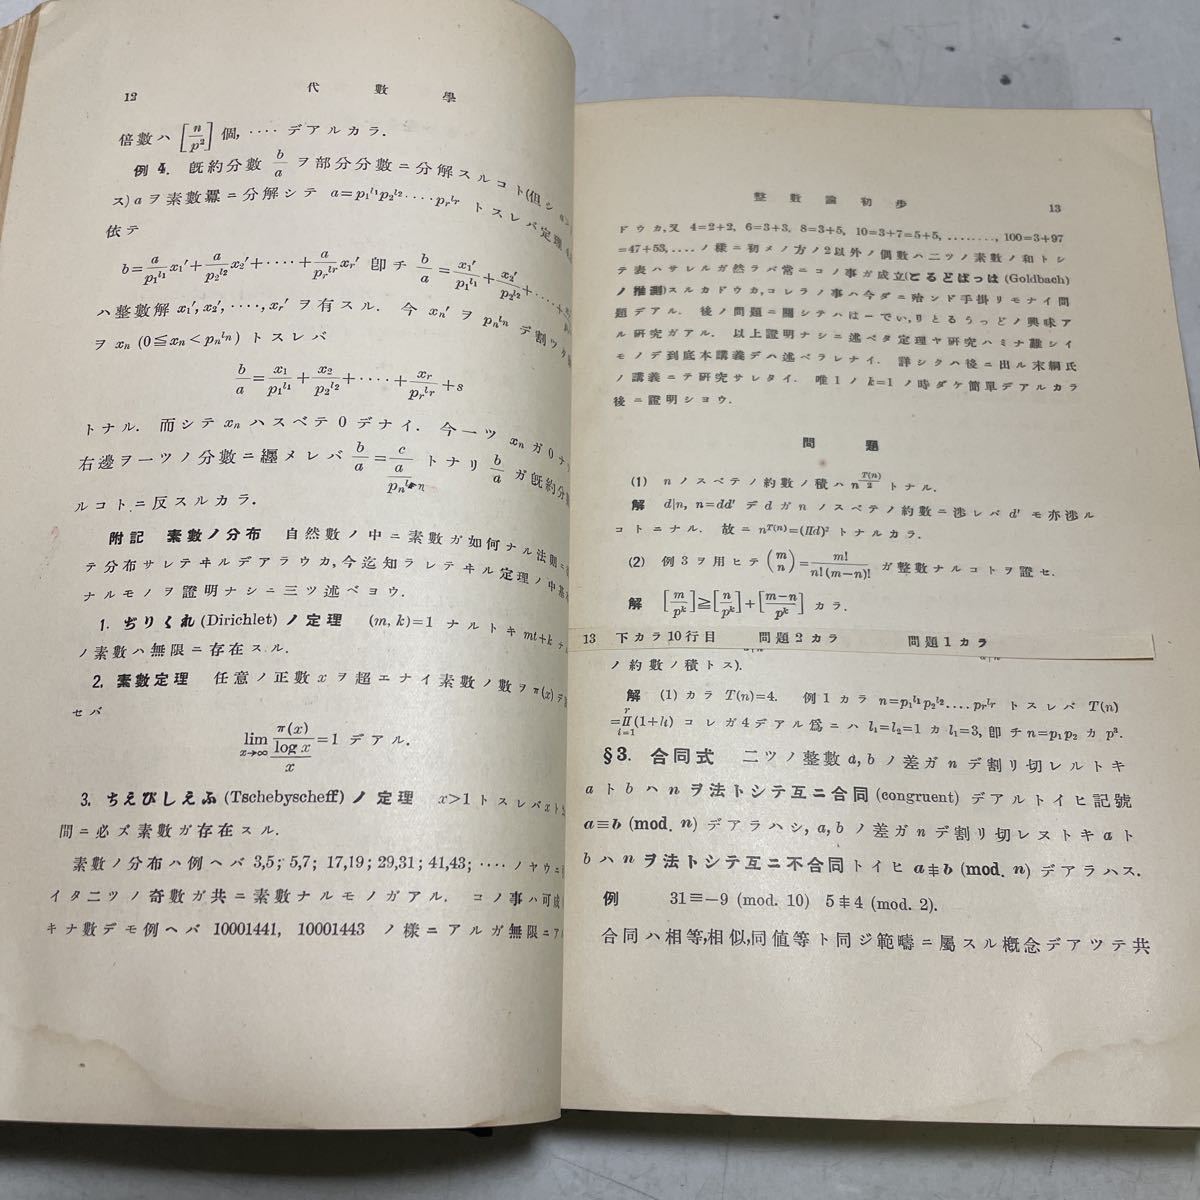 12 代數學
倍數ハ [n/p²] 個, ‥‥ デアルカラ.
例 4. 旣約分數 b/a ヲ部分分數ニ分解スルコト(但シ a>
ス) a ヲ素數冪ニ分解シテ a=p₁^l₁p₂^l₂‥‥pᵣ^lᵣ トスレバ定理
依テ
b=a/p₁^l₁ x₁′+a/p₂^l₂ x₂′+‥‥+a/pᵣ^lᵣ xᵣ′ 卽チ b/a=x₁′/p₁^l₁+x₂′/p₂^l₂+‥‥+
ハ整數解 x₁′,x₂′,‥‥,xᵣ′ ヲ有スル. 今 xₙ′ ヲ pₙ^lₙ デ割ツタ
ヲ xₙ (0≦xₙ<pₙ^lₙ) トスレバ
b/a=x₁/p₁^l₁+x₂/p₂^l₂+‥‥+xᵣ/pᵣ^lᵣ+s
トナル. 而シテ xₙ ハスベテ 0 デナイ. 今一ツ xₙ ガ 0 ナ
右邊ヲ一ツノ分數ニ纒メレバ b/a=c/(a/pₙ^lₙ) トナリ b/a ガ旣約分數
ルコトニ反スルカラ.
附記 素數ノ分布 自然數ノ中ニ素數ガ如何ナル法則ニ
テ分布サレテヰルデアラウカ,今迄知ラレテヰル定理ノ中基本
ナルモノヲ證明ナシニ三ツ述ベヨウ.
1. ぢりくれ (Dirichlet) ノ定理 (m, k)=1 ナルトキ mt+k ナ
ノ素數ハ無限ニ存在スル.
2. 素數定理 任意ノ正數 x ヲ超エナイ素數ノ數ヲ π(x) デ
セバ
lim x→∞ π(x)/(log x/x)=1 デアル.
3. ちえびしえふ (Tschebyscheff) ノ定理 x>1 トスレバ x ト
間ニ必ズ素數ガ存在スル.
素數ノ分布ハ例ヘバ 3,5; 5,7; 17,19; 29,31; 41,43; ‥‥ ノヤウニ
イタ二ツノ奇數ガ共ニ素數ナルモノガアル. コノ事ハ可成
キナ數デモ例ヘバ 10001441, 10001443 ノ樣ニアルガ無限ニア
整數論初步 13
ドウカ,又 4=2+2, 6=3+3, 8=3+5, 10=3+7=5+5, ‥‥‥‥, 100=3+97
=47+53, ‥‥ ノ樣ニ初メノ方ノ 2 以外ノ偶數ハ二ツノ素數ノ和トシ
テ表ハサレルガ然ラバ常ニコノ事ガ成立(ごるどばっは (Goldbach)
ノ推測)スルカドウカ,コレラノ事ハ今ダニ殆ンド手掛リモナイ問
題デアル. 後ノ問題ニ關シテハはーでい,りとるうっどノ興味ア
ル研究ガアル. 以上證明ナシニ述ベタ定理ヤ研究ハミナ難シイ
モノデ到底本講義デハ述ベラレナイ. 詳シクハ後ニ出ル末綱氏
ノ講義ニテ硏究サレタイ. 唯 1 ノ k=1 ノ時ダケ簡單デアルカラ
後ニ證明シヨウ.
問題
(1) n ノスベテノ約數ノ積ハ n^(T(n)/2) トナル.
解 d|n, n=dd′ デ d ガ n ノスベテノ約數ニ涉レバ d′ モ亦涉ル
コトニナル. 故ニ n^T(n)=(Πd)² トナルカラ.
(2) 例 3 ヲ用ヒテ (m n)=m!/n!(m−n)! ガ整數ナルコトヲ證セ.
解 [m/pᵏ]≧[n/pᵏ]+[(m−n)/pᵏ] カラ.
13 下カラ10行目 問題2カラ 問題1カラ
ノ約數ノ積トス).
解 (1) カラ T(n)=4. 例 1 カラ n=p₁^l₁p₂^l₂‥‥pᵣ^lᵣ トスレバ T(n)
=Π(i=1→r)(1+lᵢ) コレガ 4 デアル爲ニハ l₁=l₂=1 カ l₁=3, 卽チ n=p₁p₂ カ p³.
§3. 合同式 二ツノ整數 a, b ノ差ガ n デ割リ切レルトキ
a ト b ハ n ヲ法トシテ互ニ合同 (congruent) デアルトイヒ記號
a≡b (mod. n) デアラハシ, a, b ノ差ガ n デ割リ切レヌトキ a ト
b ハ n ヲ法トシテ互ニ不合同トイヒ a≢b (mod. n) デアラハス.
例 31≡−9 (mod. 10) 5≢4 (mod. 2).
合同ハ相等,相似,同値等ト同ジ範疇ニ屬スル槪念デアツテ共